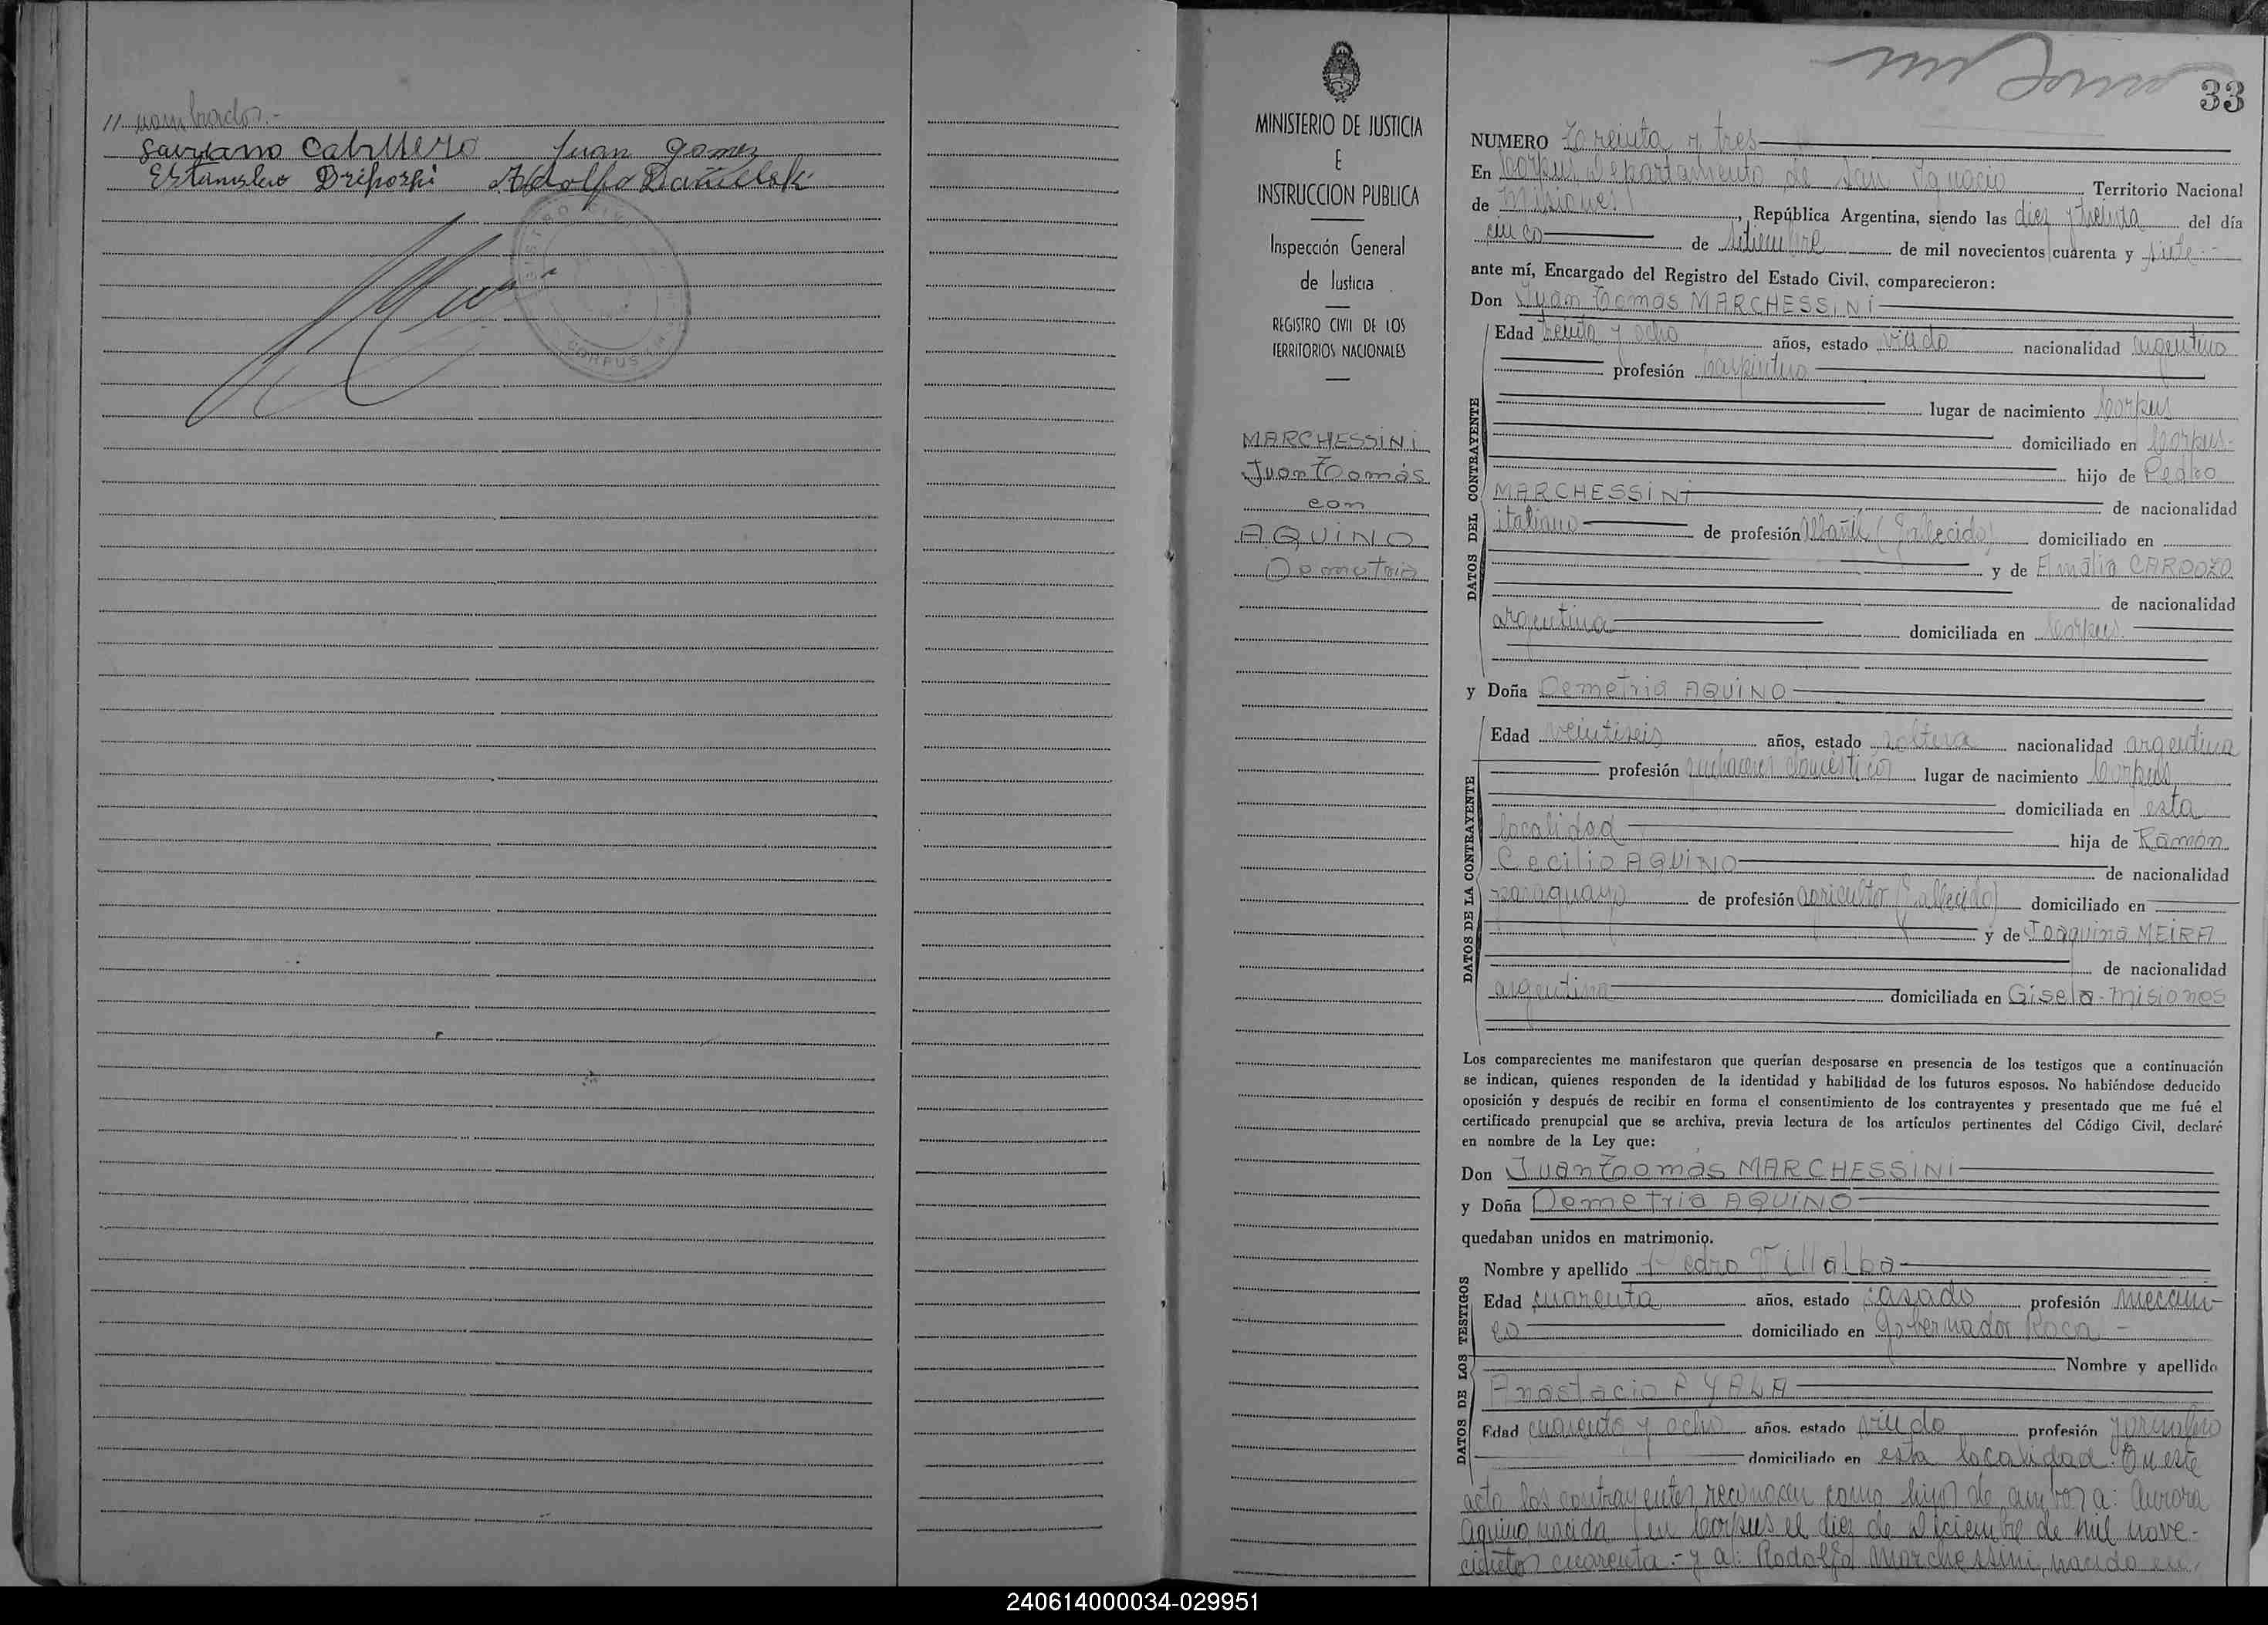 // nombrados.-
Caballero Juan Gomez
Estanislao Adolfo
CORPUS
MINISTERIO DE JUSTICIA
E
INSTRUCCION PUBLICA
Inspección General
de Justicia
REGISTRO CIVIL DE LOS
TERRITORIOS NACIONALES
MARCHESSINI
Juan Tomás
con
AQUINO
Demetria
33
NUMERO Treinta y tres
En Corpus Departamento de San Ignacio Territorio Nacional
de Misiones, República Argentina, siendo las diez y treinta del día
cinco de setiembre de mil novecientos cuarenta y siete.-
ante mí, Encargado del Registro del Estado Civil, comparecieron:
Don Juan Tomás MARCHESSINI
DATOS DEL CONTRAYENTE
Edad treinta y ocho años, estado viudo nacionalidad argentino
profesión carpintero
lugar de nacimiento Corpus
domiciliado en Corpus-
hijo de Pedro
MARCHESSINI de nacionalidad
italiano de profesión albañil (fallecido) domiciliado en
y de Amalia CARDOZO
de nacionalidad
argentina domiciliada en Corpus.
y Doña Demetria AQUINO
DATOS DE LA CONTRAYENTE
Edad veintiseis años, estado soltera nacionalidad argentina
profesión quehaceres domésticos lugar de nacimiento Corpus
domiciliada en esta
localidad hija de Ramón
Cecilio AQUINO de nacionalidad
paraguayo de profesión agricultor (fallecido) domiciliado en
y de Joaquina MEIRA
de nacionalidad
argentina domiciliada en Gisela-Misiones
Los comparecientes me manifestaron que querían desposarse en presencia de los testigos que a continuación
se indican, quienes responden de la identidad y habilidad de los futuros esposos. No habiéndose deducido
oposición y después de recibir en forma el consentimiento de los contrayentes y presentado que me fué el
certificado prenupcial que se archiva, previa lectura de los artículos pertinentes del Código Civil, declaré
en nombre de la Ley que:
Don Juan Tomás MARCHESSINI
y Doña Demetria AQUINO
quedaban unidos en matrimonio.
DATOS DE LOS TESTIGOS
Nombre y apellido Pedro Villalba
Edad cuarenta años, estado casado profesión mecáni-
co domiciliado en Gobernador Roca-
Nombre y apellido
Anastacio AYALA
Edad cuarenta y ocho años, estado viudo profesión jornalero
domiciliado en esta localidad. En este
acto los contrayentes reconocen como hijos de ambos a: Aurora
Aquino, nacida en Corpus el diez de diciembre de mil nove-
cientos cuarenta.- y a: Rodolfo Marchessini, nacido en
240614000034-029951